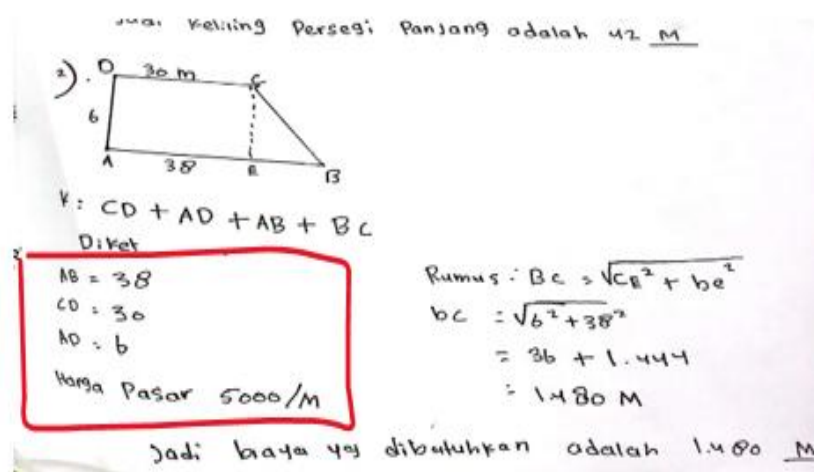 Jadi Keliling Persegi Panjang adalah 42 M
2).
D 30 m C
6
A 38 E B
K: CD + AD + AB + BC
Diket
AB = 38
CD = 30
AD = 6
Harga Pasar 5000/M
Rumus: BC = √CE² + be²
bc = √6² + 38²
= 36 + 1.444
= 1.480 M
Jadi biaya yg dibutuhkan adalah 1.480 M